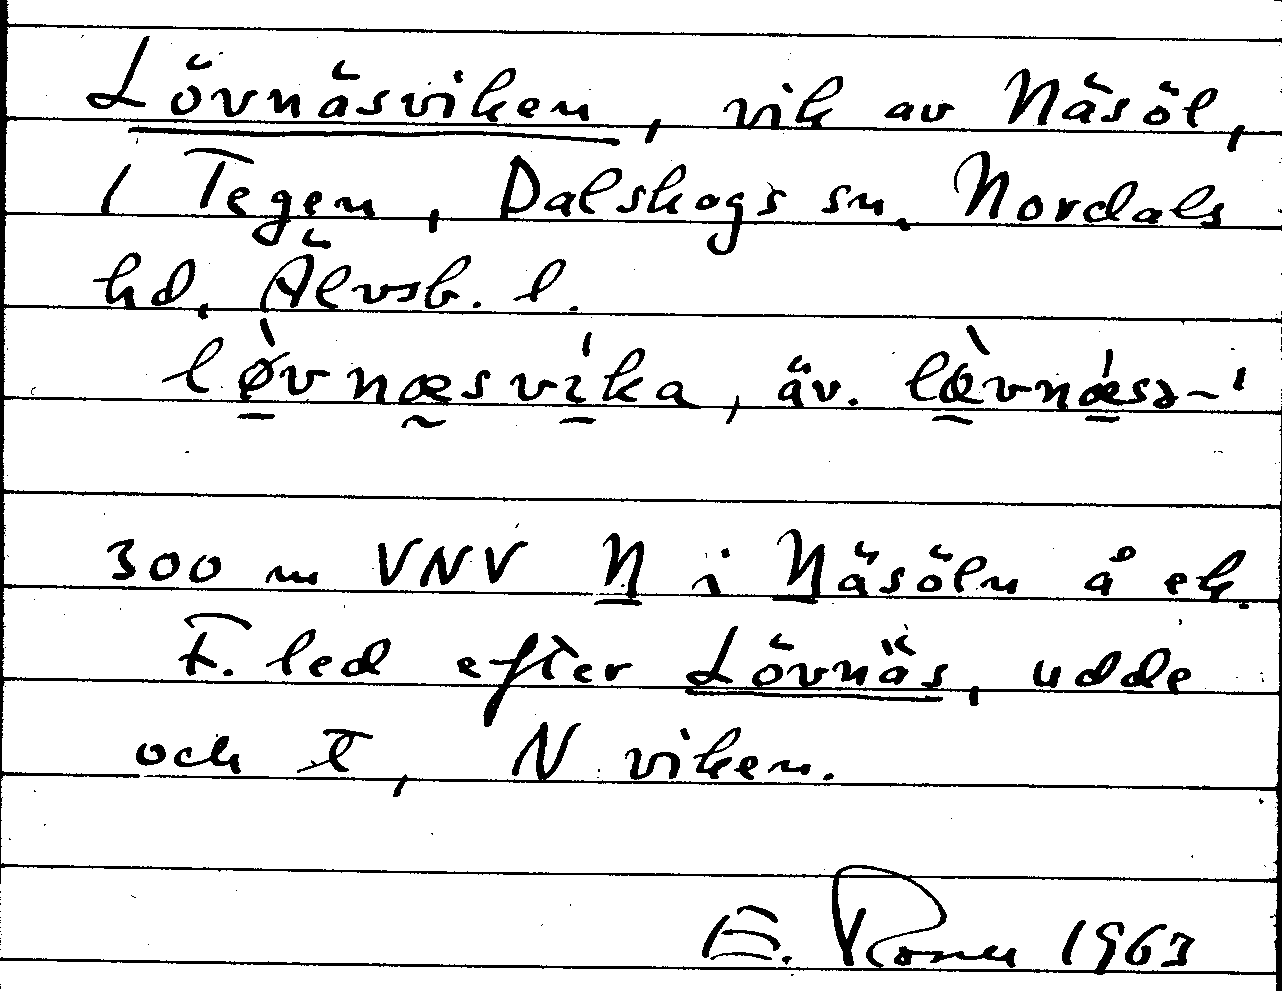 Lövnäsviken, vik av Näsöl,
1 Tegen, Dalskogs sn. Nordals
hd, Älvsb. l.
lø̀vnæsvíka, äv. lœ̀vnǽsə-ˈ
300 m VNV N i Näsöln å ek.
F. led efter Lövnäs, udde
och t, N viken.
E. 1963